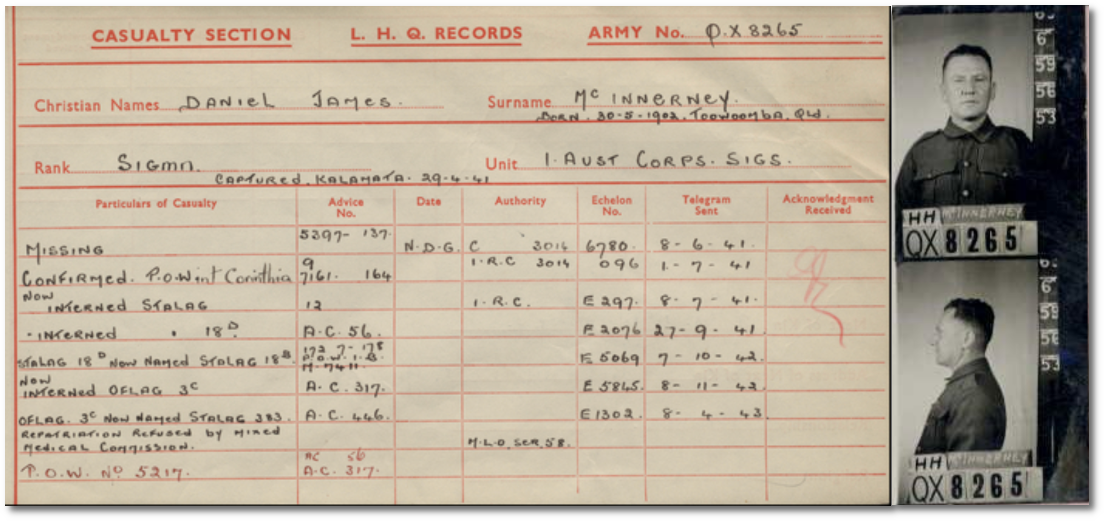 CASUALTY SECTION L. H. Q. RECORDS ARMY No. Q.X 8265
Christian Names DANIEL JAMES. Surname Mc INNERNEY.
BORN. 30-5-1902. TOOWOOMBA, QLD.
Rank SIGMN. Unit 1. AUST CORPS. SIGS.
CAPTURED. KALAMATA. 29-4-41
Particulars of Casualty Advice No. Date Authority Echelon No. Telegram Sent Acknowledgment Received
MISSING 5397- 137. N.D.G. C 3014 6780. 8-6-41.
CONFIRMED. P.O.W int Corinthia 9 7161. 164 I.R.C 3014 096 1-7-41
NOW INTERNED STALAG 12 I.R.C. E 297. 8-7-41.
-INTERNED " 18 D A.C. 56. E 2076 27-9-41.
STALAG 18 D NOW NAMED STALAG 18 B 172 7-178 P.O.W. I.B. M.7411. E 5069 7-10-42.
NOW INTERNED OFLAG 3C A.C. 317. E 5845. 8-11-42.
OFLAG. 3C NOW NAMED STALAG 383. A.C. 446. E 1302. 8-4-43.
REPATRIATION REFUSED BY MIXED
MEDICAL COMMISSION. M.L.O. SER. 58.
P.O.W. No 5217. AC 56 A.C. 317.
6
59
56
53
HH McINNERNEY
QX 8265
6
59
56
53
HH McINNERNEY
QX 8265